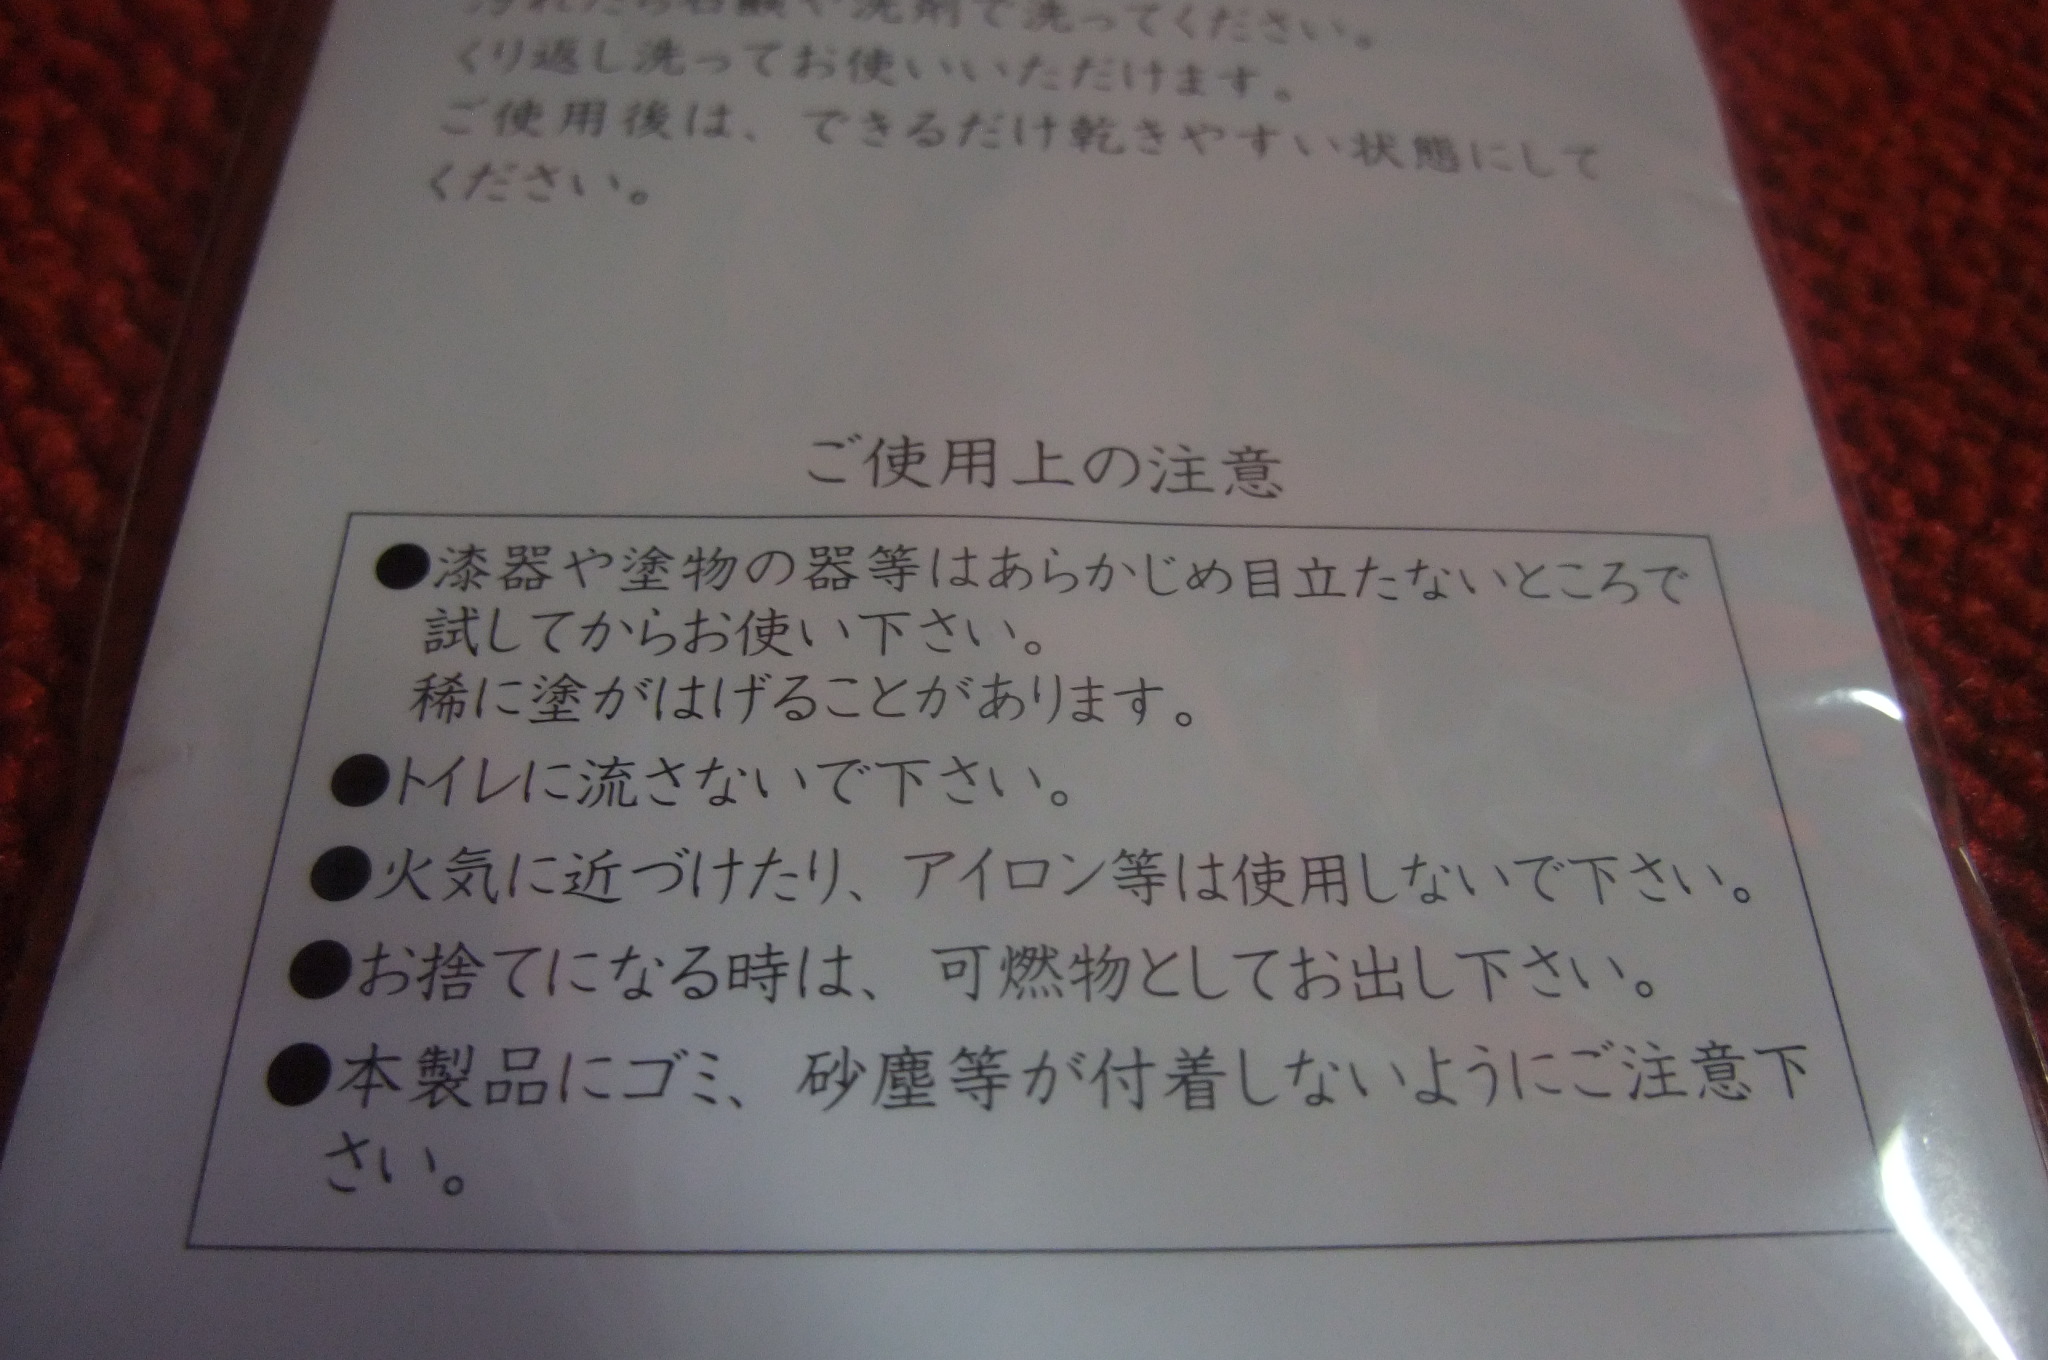 汚れたら石鹸や洗剤で洗ってください。
くり返し洗ってお使いいただけます。
ご使用後は、できるだけ乾きやすい状態にして
ください。
ご使用上の注意
●漆器や塗物の器等はあらかじめ目立たないところで
試してからお使い下さい。
稀に塗がはげることがあります。
●トイレに流さないで下さい。
●火気に近づけたり、アイロン等は使用しないで下さい。
●お捨てになる時は、可燃物としてお出し下さい。
●本製品にゴミ、砂塵等が付着しないようにご注意下
さい。